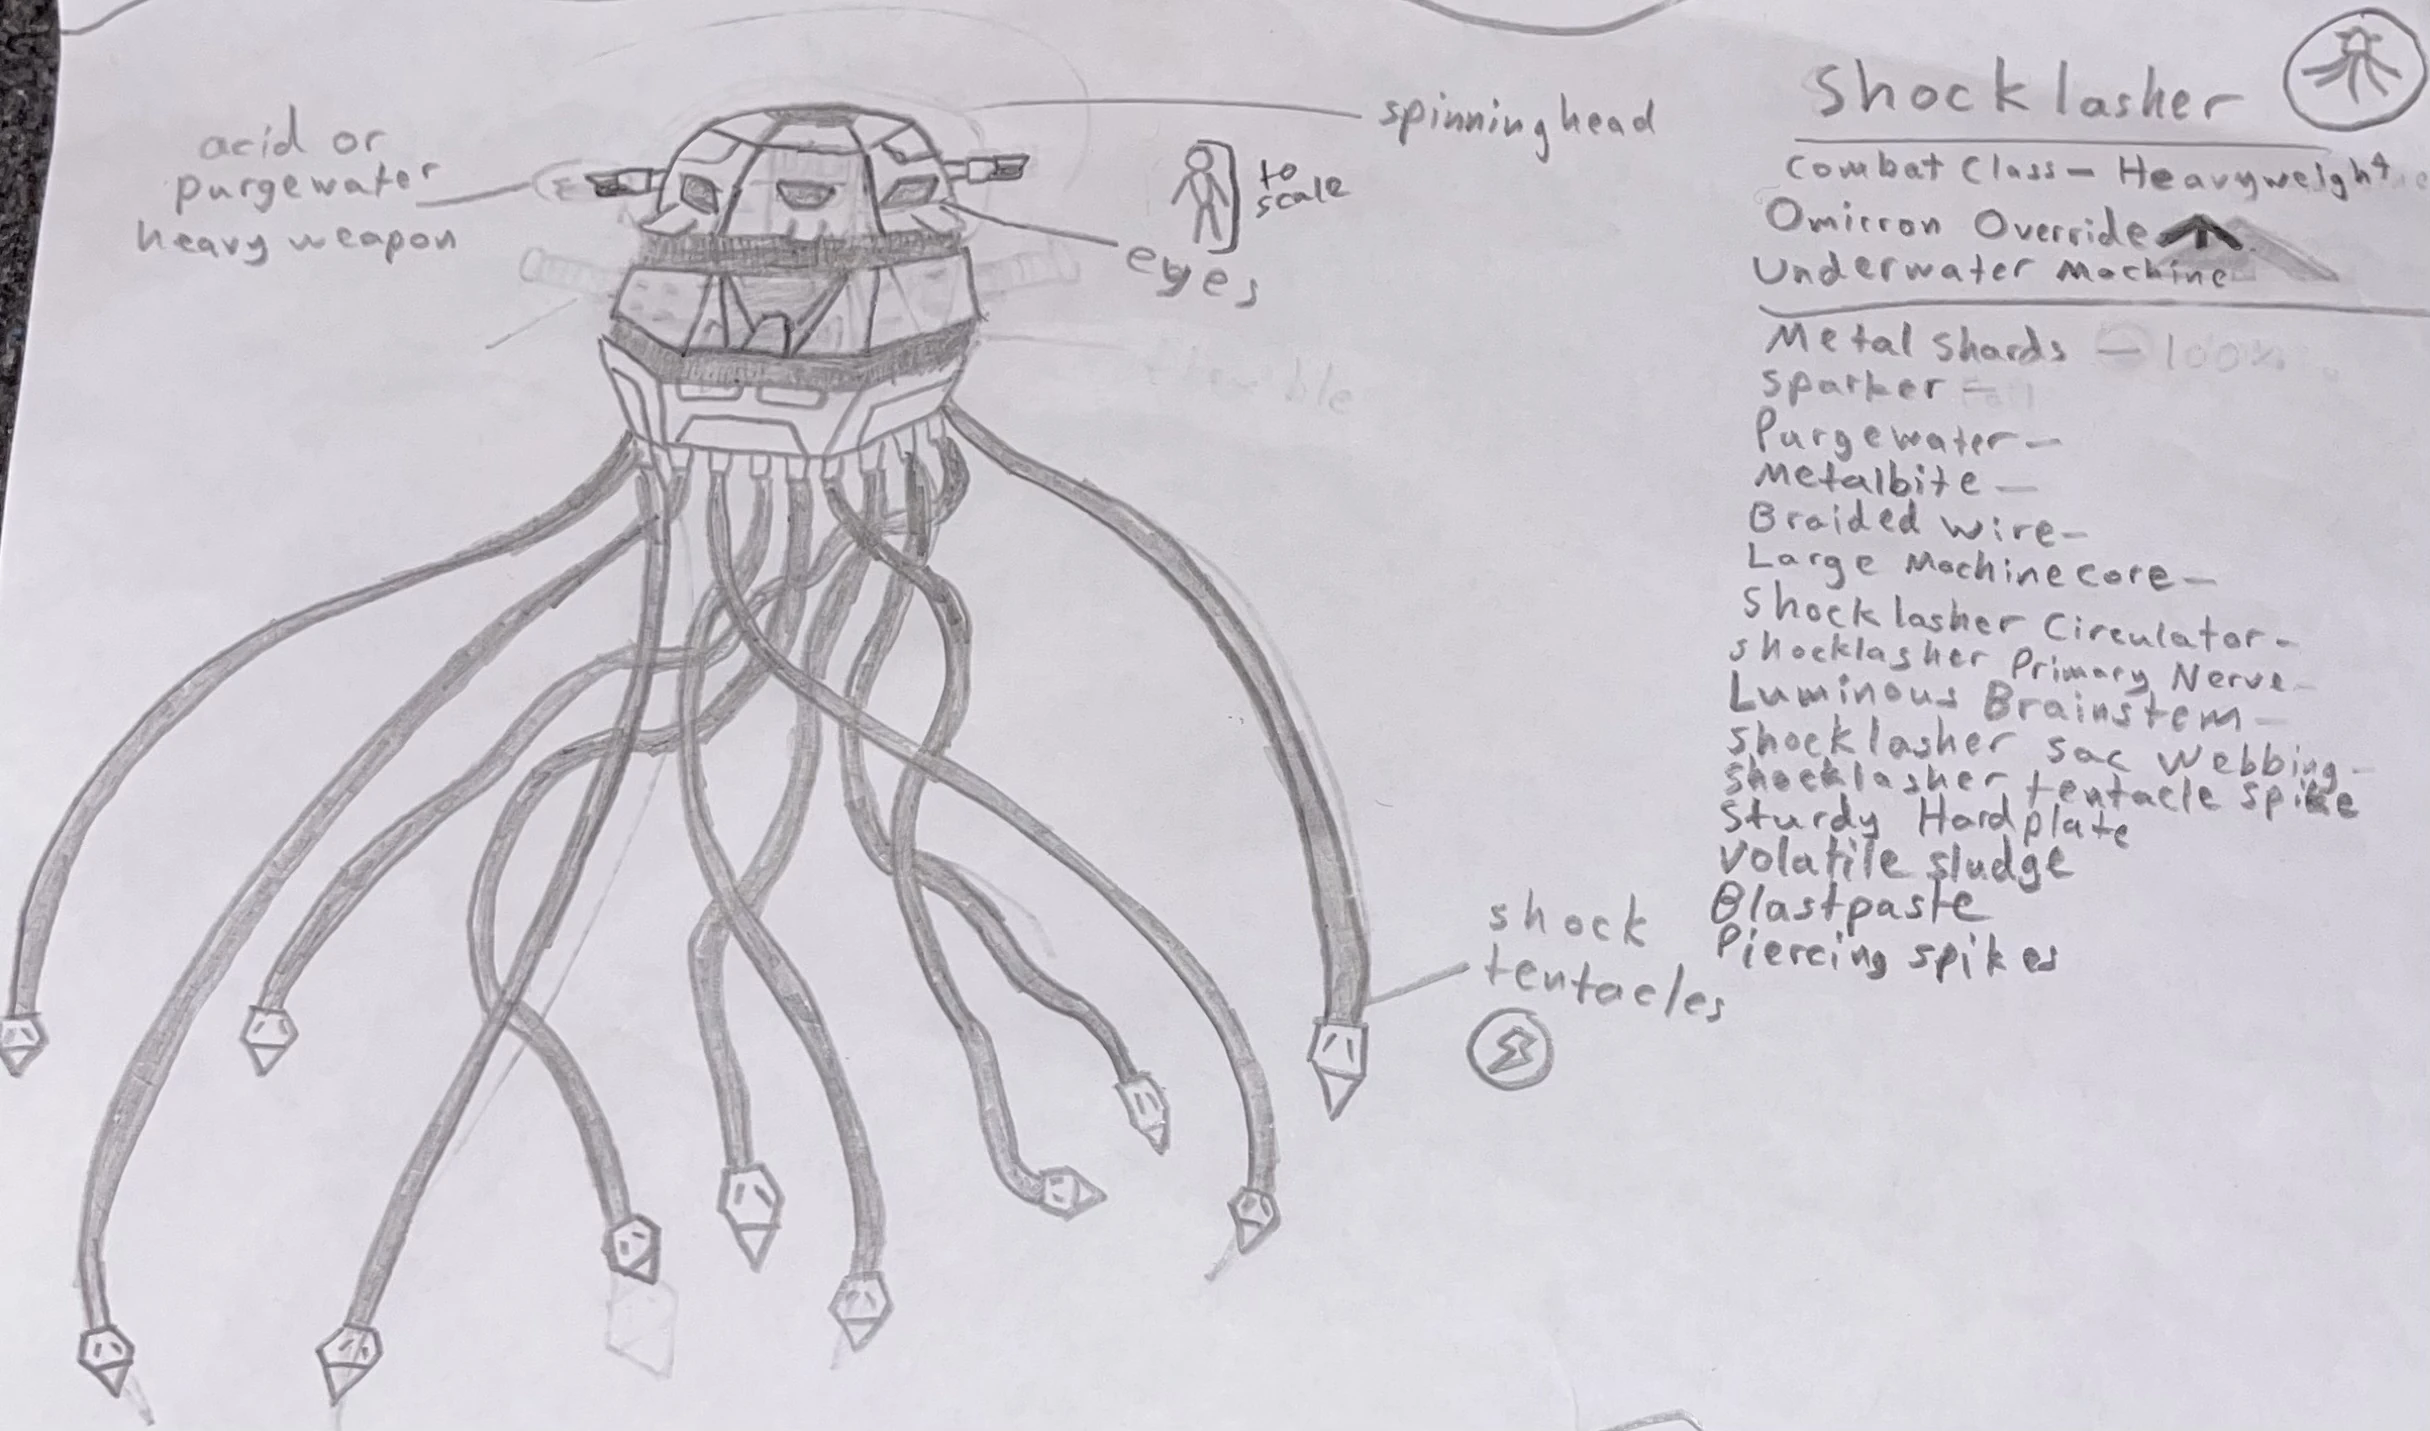 acid or
purgewater
heavy weapon
spinning head
to
scale
eyes
shock
tentacles
Shocklasher
Combat Class - Heavyweight
Omicron Override
Underwater Machine
Metal Shards - 100%
Sparker -
Purgewater -
Metalbite -
Braided Wire -
Large Machine Core -
Shocklasher Circulator -
Shocklasher Primary Nerve -
Luminous Brainstem -
Shocklasher Sac Webbing -
Shocklasher tentacle spike
Sturdy Hardplate
Volatile sludge
Blastpaste
Piercing spikes